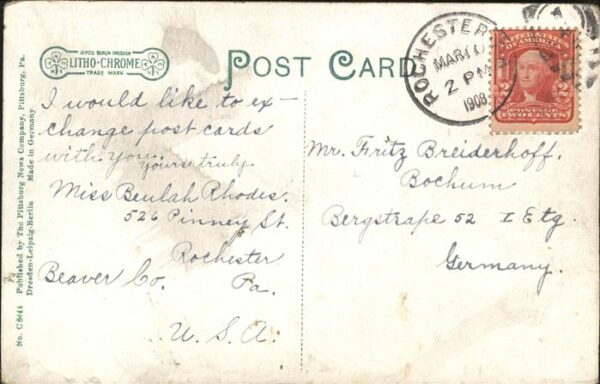 LEIPZIG BERLIN DRESDEN
LITHO-CHROME
TRADE MARK
POST CARD
ROCHESTER
MAR 10
2 PM
1908
UNITED STATES
OF AMERICA
2 2
POSTAGE
TWO CENTS
No. C 8644 Published by The Pittsburg News Company, Pittsburg, Pa.
Dresden-Leipzig-Berlin Made in Germany
I would like to ex-
change post cards
with you.
Yours truly.
Miss Beulah Rhodes.
526 Pinney St.
Rochester
Beaver Co. Pa.
U.S.A.
Mr. Fritz Breiderhoff.
Bochum
Bergstrape 52 I Etg.
Germany.